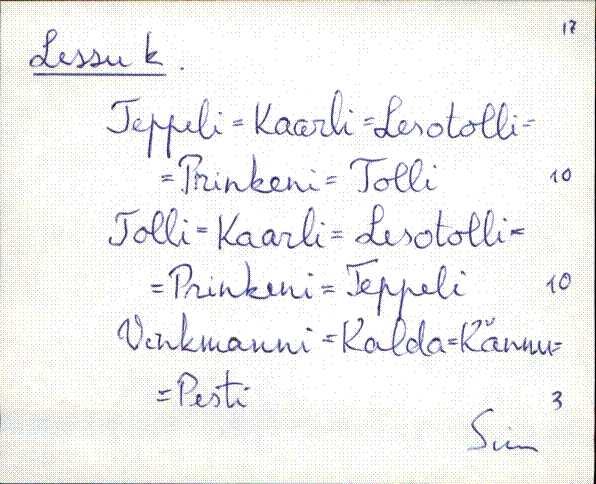 17
Lessu k.
Teppeli = Kaarli = Lesotolli =
= Prinkeni = Tolli 10
Tolli = Kaarli = Lesotolli =
= Prinkeni = Teppeli 10
Vinkmanni = Kalda = Kännu =
= Pesti 3